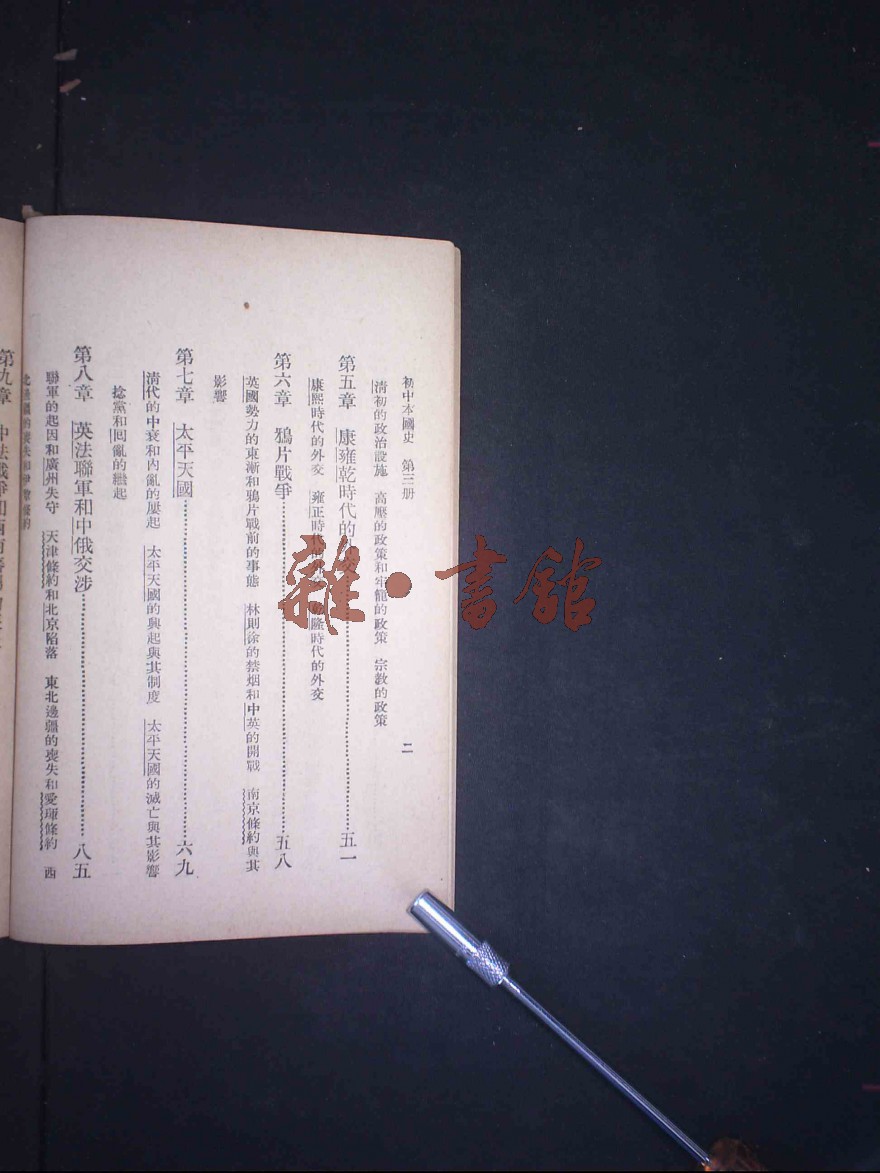 初中本國史　第三册
二
清初的政治設施　高壓的政策和牢籠的政策　宗教的政策
第五章　康雍乾時代的外交 五一
康熙時代的外交　雍正時代的外交　乾隆時代的外交
第六章　鴉片戰爭 五八
英國勢力的東漸和鴉片戰前的事態　林則徐的禁烟和中英的開戰　南京條約與其
影響
第七章　太平天國 六九
清代的中衰和內亂的屢起　太平天國的興起與其制度　太平天國的滅亡與其影響
捻黨和回亂的繼起
第八章　英法聯軍和中俄交涉 八五
聯軍的起因和廣州失守　天津條約和北京陷落　東北邊疆的喪失和愛琿條約　西
北邊疆的喪失和伊犂條約
第九章　中法戰爭和西南
雜·書館